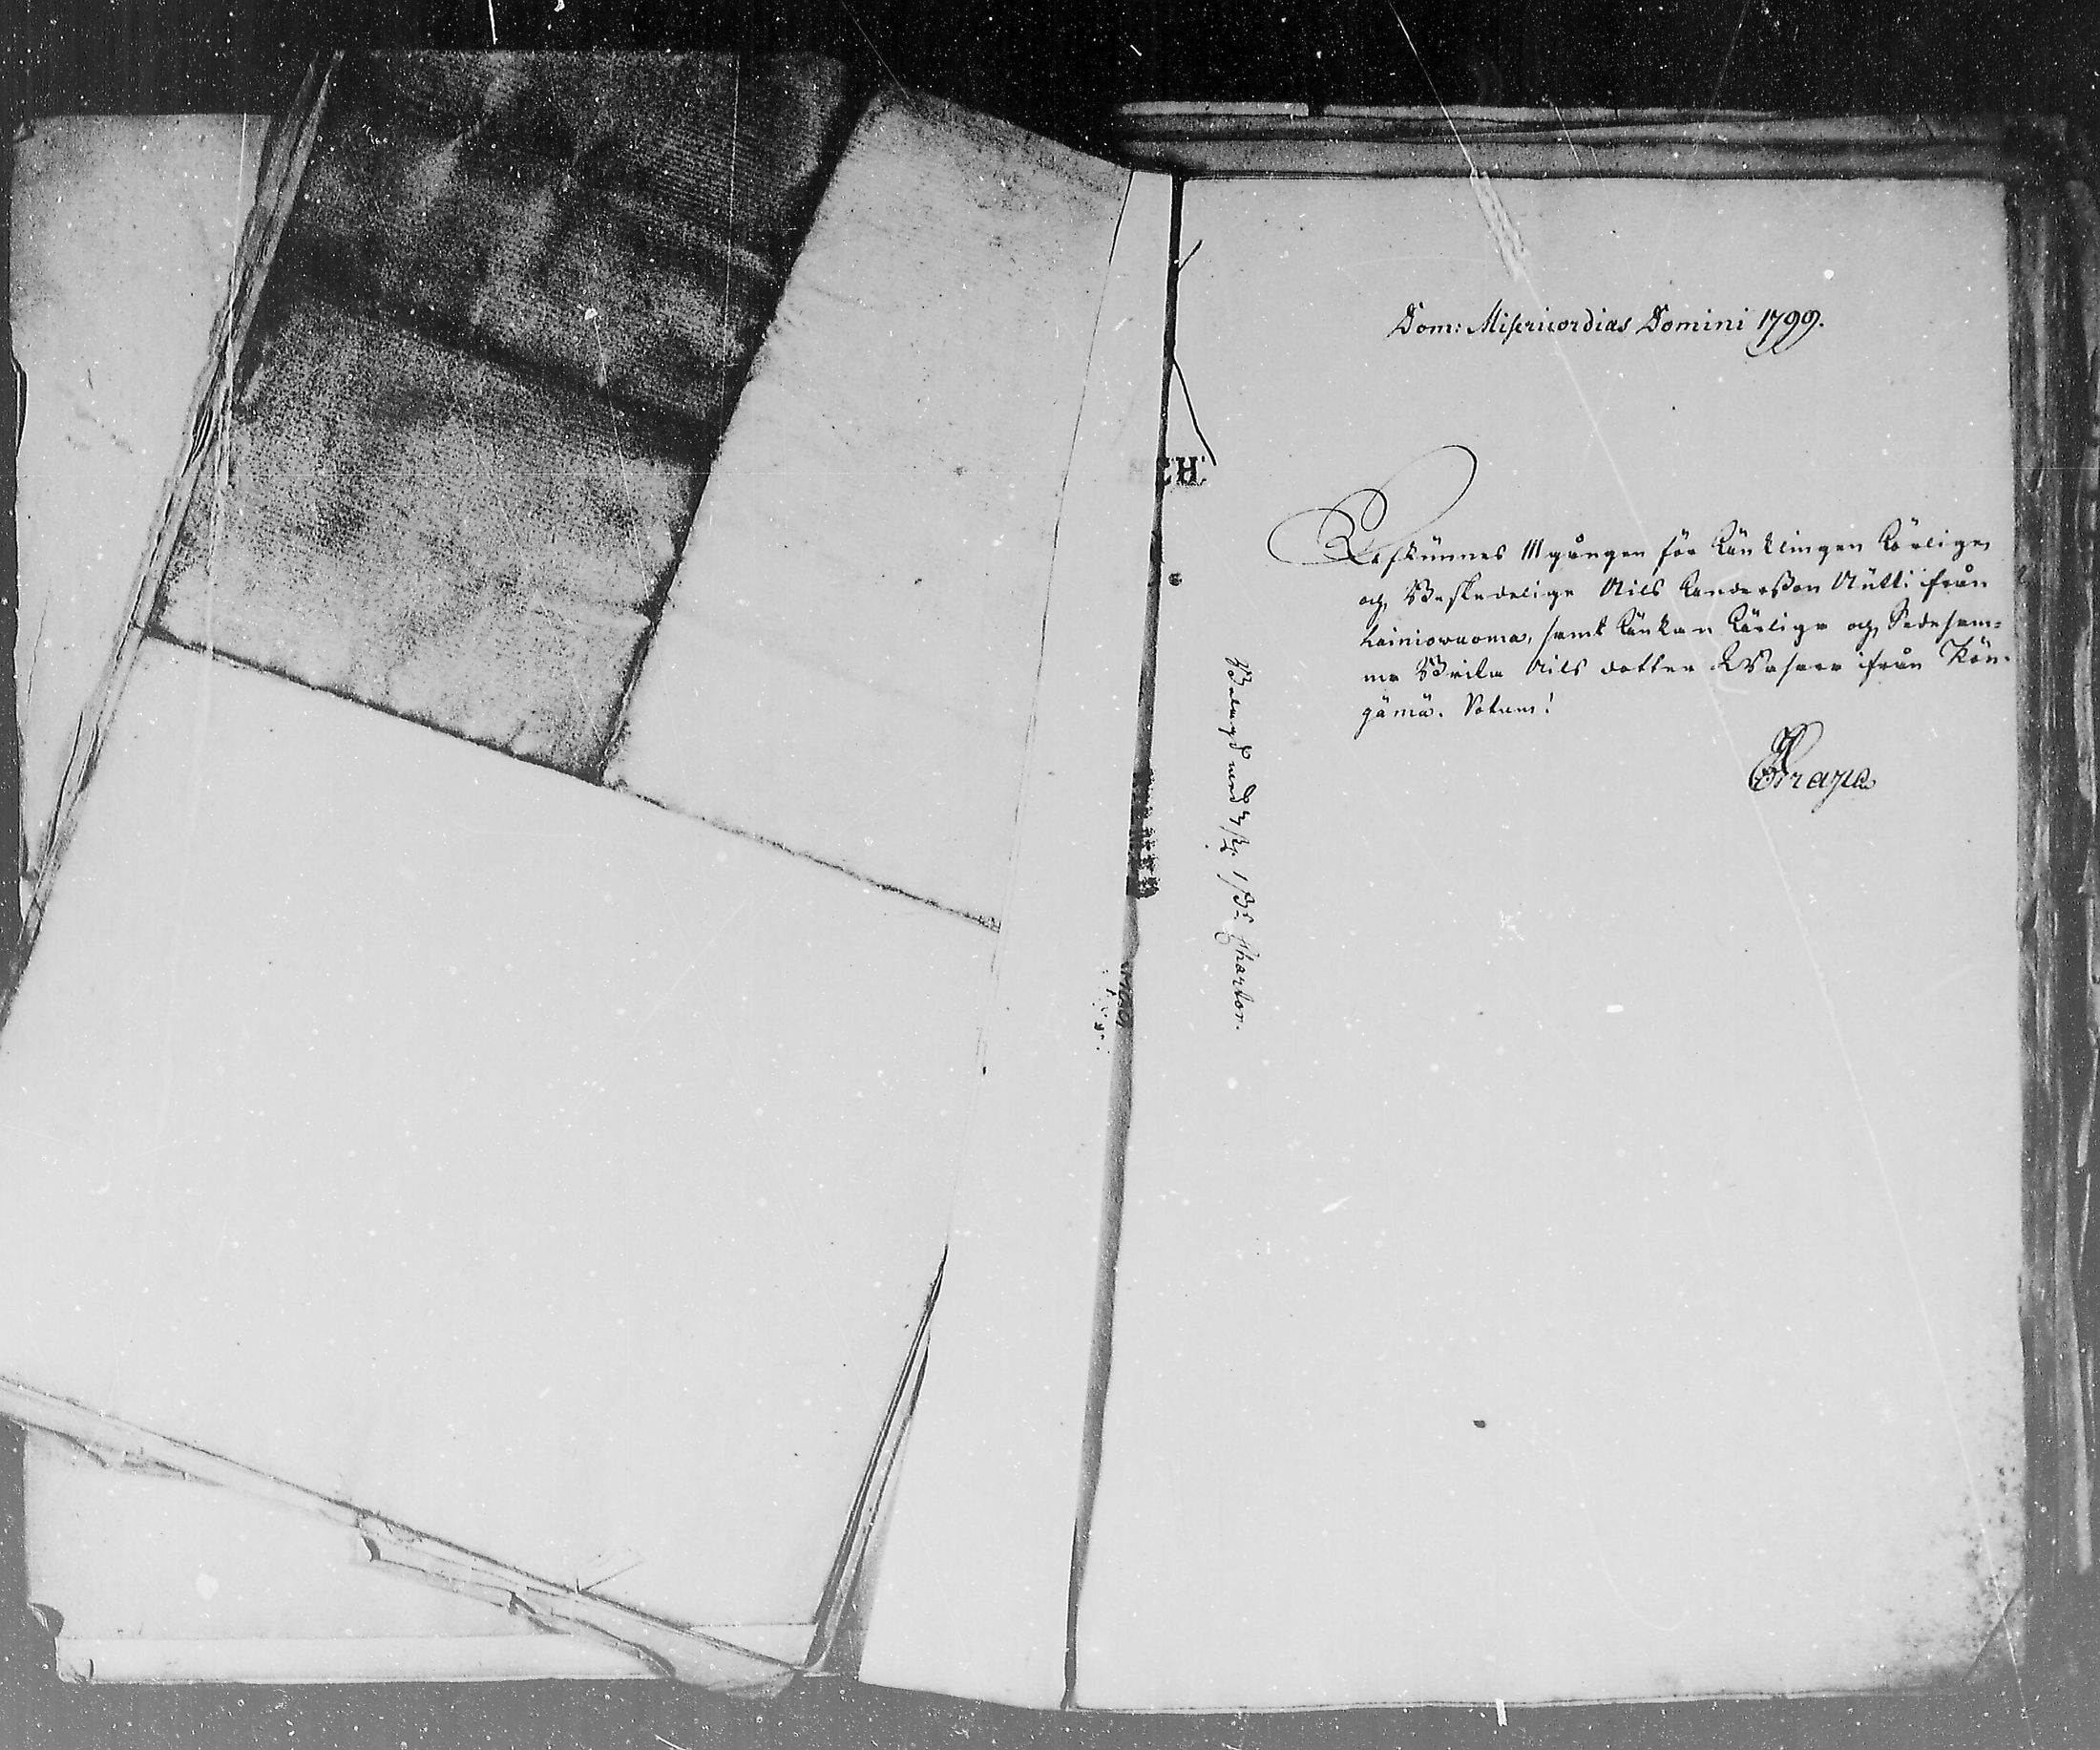 Dom: Misericordias Domini 1799.
Afkunnes III gången för Ynklingen Ärlige
och Beskedelige Nils Andersson Nutti ifrån
Lainiowuoma, samt Änkan Ärlige och Sedesam-
ma Brita Nils dotter Wasara ifrån Kön-
gämä. Votum!
Belagd med
Chartor.